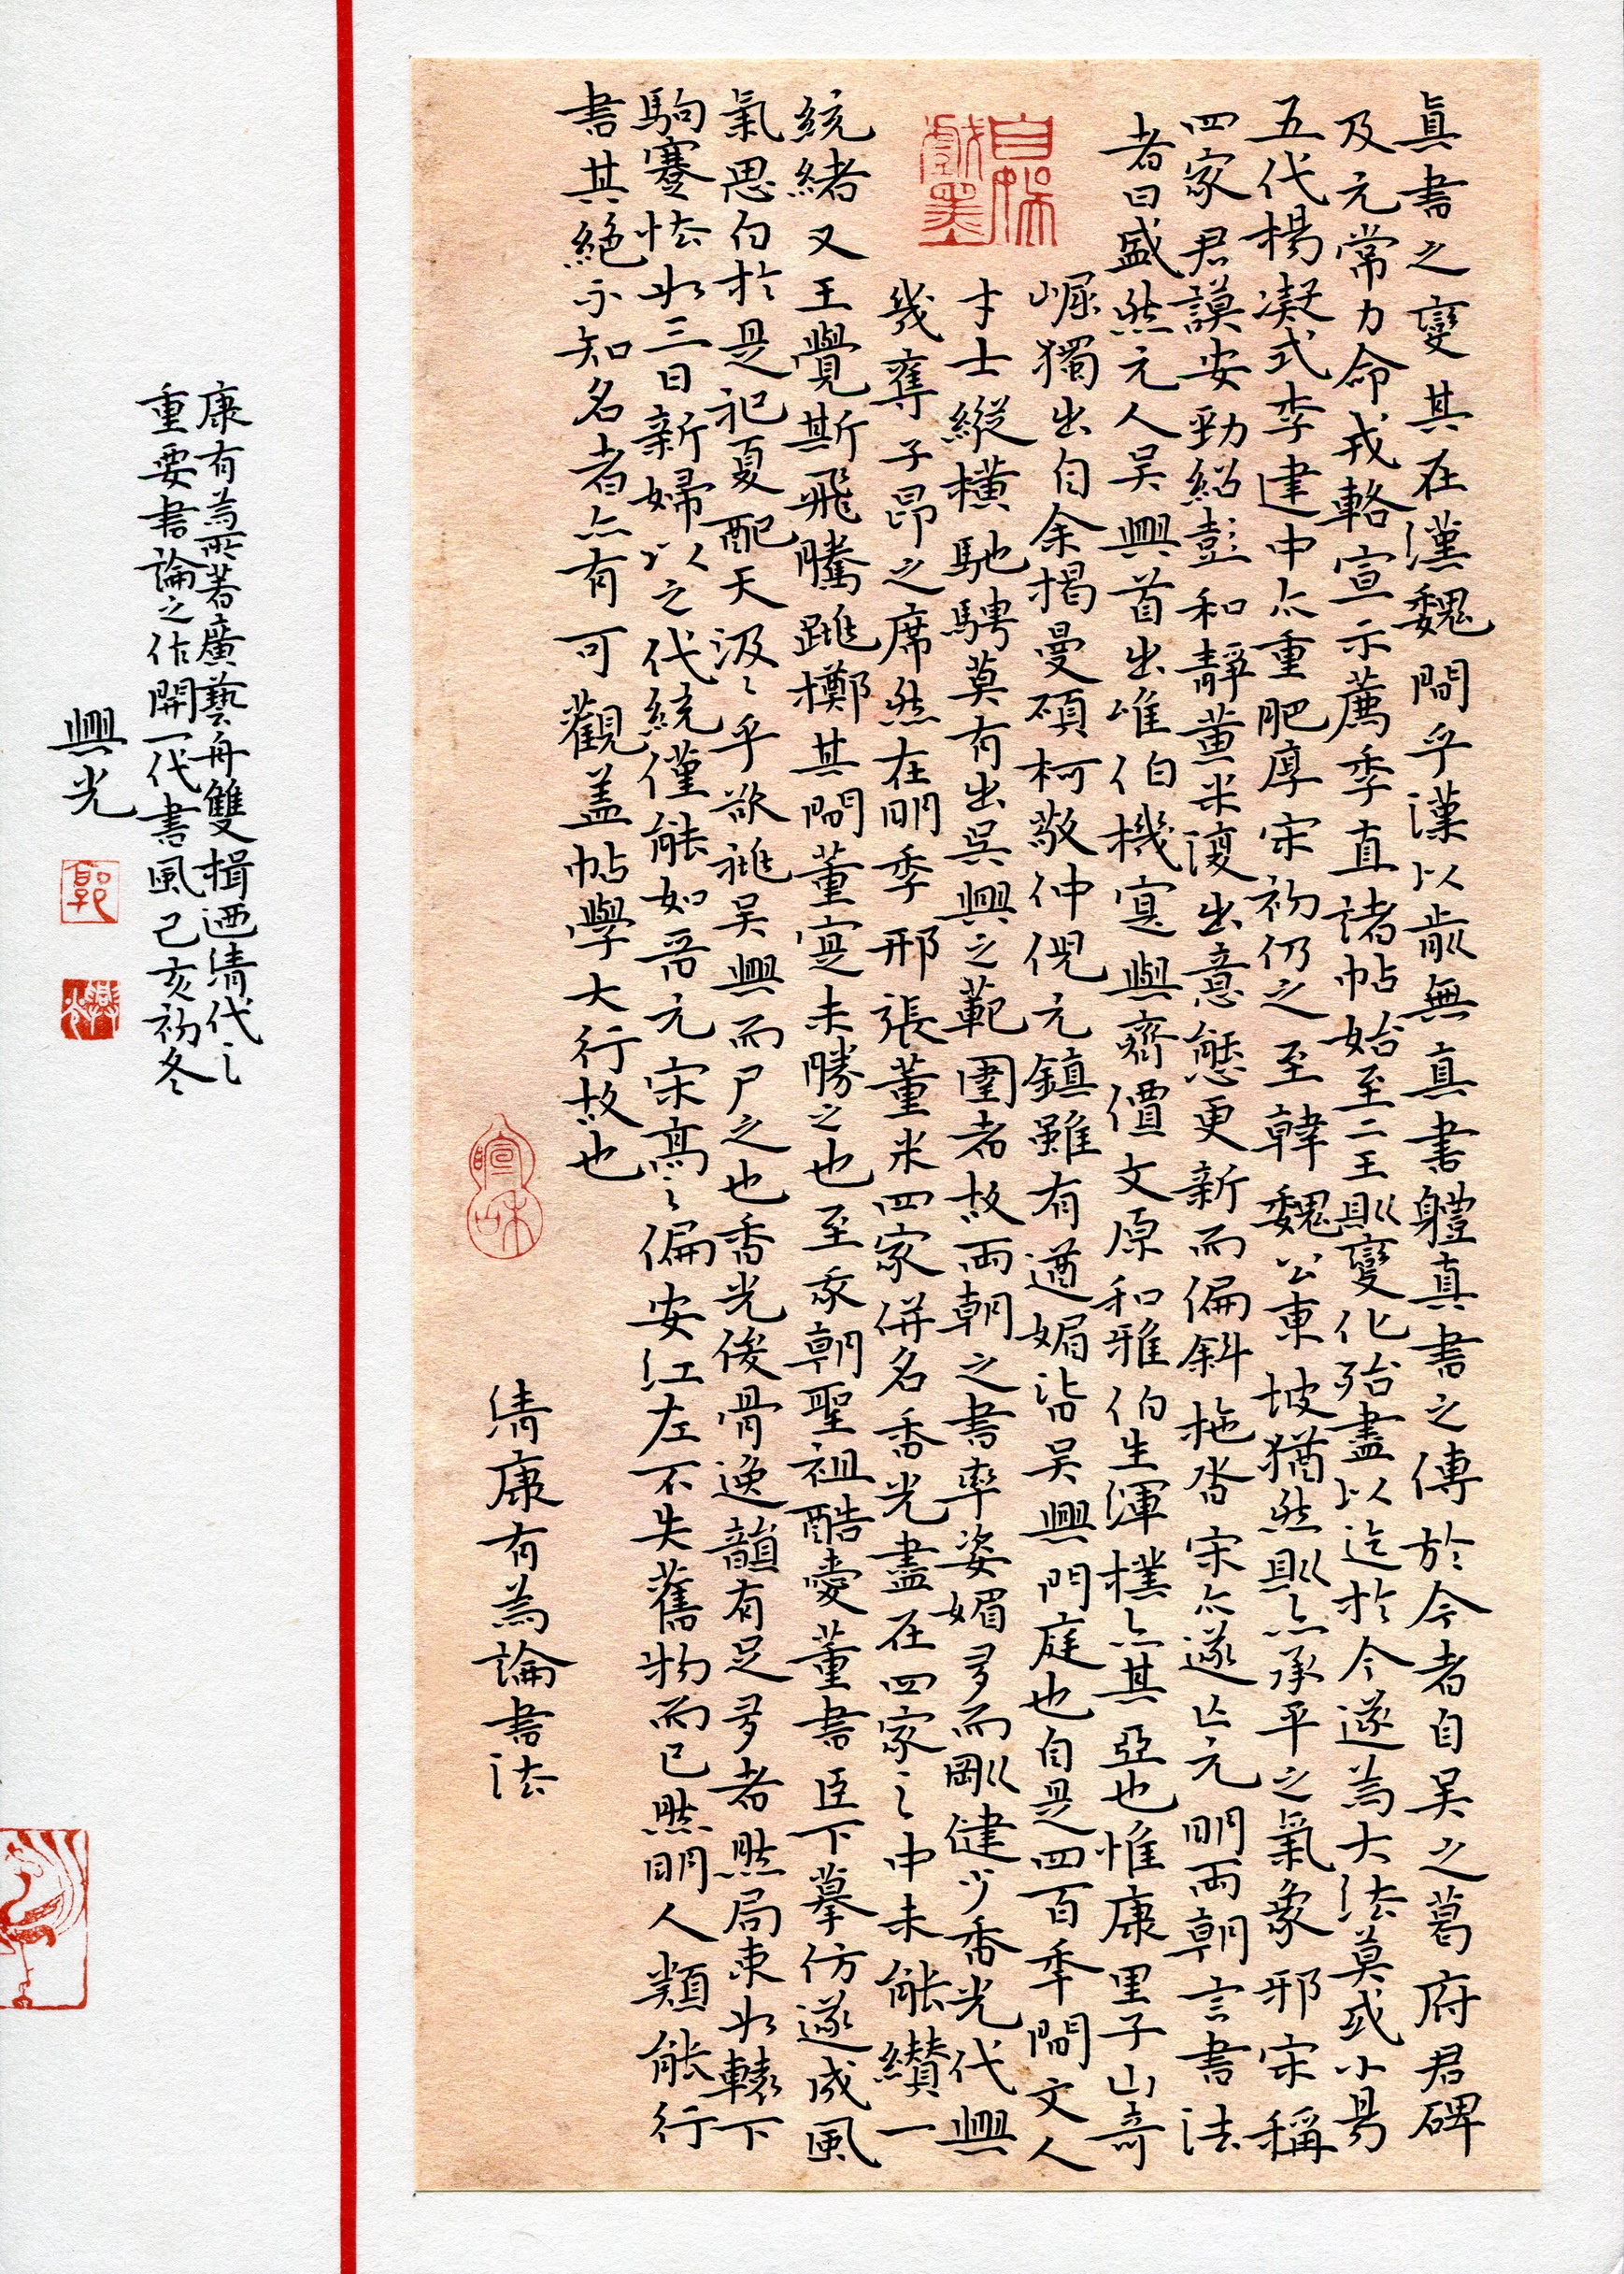 真書之變其在漢魏間乎漢以前無真書體真書之傳於今者自吳之葛府君碑
及元常力命戎輅宣示薦季直諸帖始至二王則變化殆盡以迄於今遂為大法莫或小易
五代楊凝式李建中亦重肥厚宋初仍之至韓魏公東坡猶然則亦承平之氣象邪宋稱
四家君謨安勁紹彭和靜黃米復出意態更新而偏斜拖沓宋亦遂亡元明兩朝言書法
者日盛然元人吳興首出唯伯機寔與齊價文原和雅伯生渾樸亦其亞也惟康里子山奇
崛獨出自余揭曼碩柯敬仲倪元鎮雖有遒媚沿吳興門庭也自是四百年間文人
才士縱橫馳騁莫有出吳興之範圍者故兩朝之書率姿媚多而剛健少香光代興
幾奪子昂之席然在明季邢張董米四家併名香光盡在四家之中未能纘一
統緒又王覺斯飛騰跳擲其間董寔未勝之也至我朝聖祖酷愛董書臣下摹仿遂成風
氣思白於是祀夏配天汲〻乎欲祧吳興而尸之也香光俊骨逸韻有足多者然局束如轅下
駒蹇怯如三日新婦以之代統僅能如晉元宋高之偏安江左不失舊物而已然明人類能行
書其絕不知名者亦有可觀蓋帖學大行故也
清康有為論書法
康有為所著廣藝舟雙楫迺清代之
重要書論之作開一代書風己亥初冬
興光
郭
興光
宣和